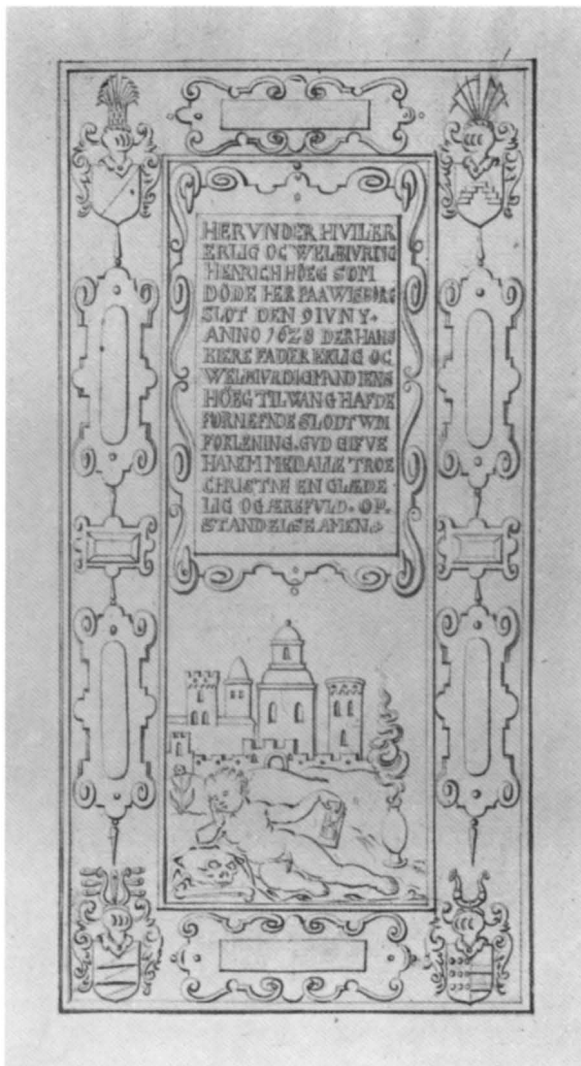 HER VNDER HVILER
ERLIG OC WELBIVRDIG
HENRICH HÖEG SOM
DÖDE HER PAA WISBORG
SLOT DEN 9 IVNY.
ANNO 1628 DER HANS
KIERE FADER ERLIG OC
WELBIVRDIG MAND IENS
HÖEG TIL WANG HAFDE
FORNEFNDE SLODT WDI
FORLENING. GVD GIFVE
HANEM MED ALLE TROE
CHRISTNE EN GLÆDE
LIG OG ÆREFVLD. OP.
STANDELSE AMEN.